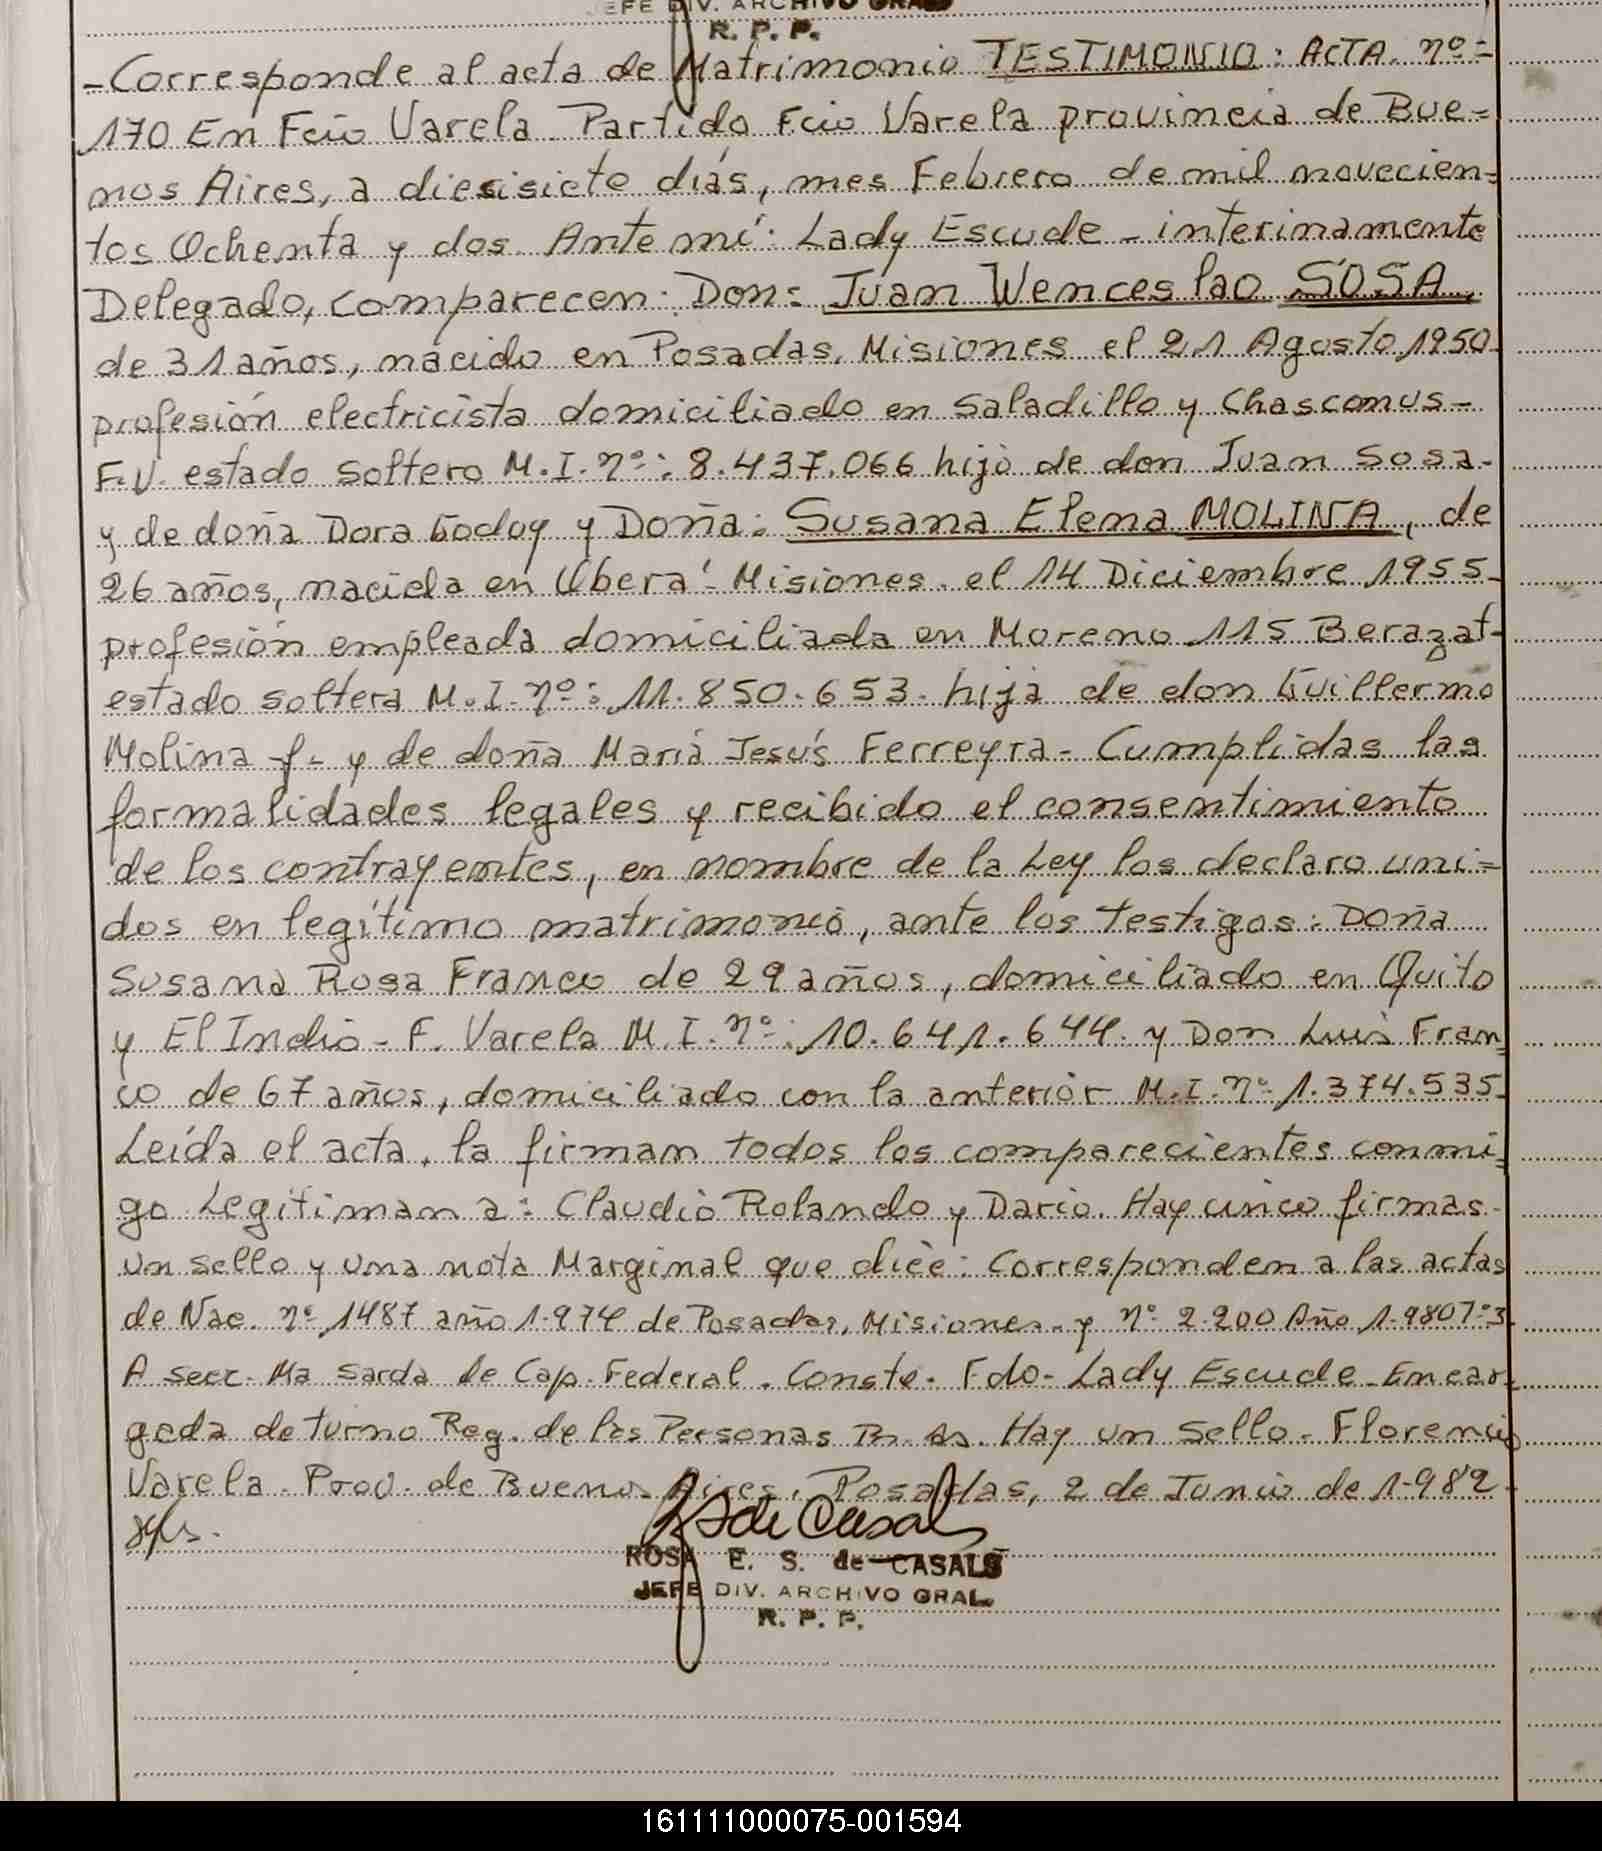 JEFE DIV. ARCHIVO GRAL
R. P. P.
-Corresponde al acta de Matrimonio TESTIMONIO: ACTA. nº=
170 En Fcio Varela. Partido Fcio Varela provincia de Bue=
nos Aires, a diesisiete días, mes Febrero de mil novecien=
tos Ochenta y dos. Ante mí: Lady Escude - interinamente
Delegado, comparecen: Don: Juan Wenceslao SOSA,
de 31 años, nacido en Posadas, Misiones el 21 Agosto 1950
profesión electricista domiciliado en Saladillo y Chascomus-
F.V. estado soltero M.I. nº: 8.437.066 hijo de don Juan Sosa-
y de doña Dora Godoy y Doña: Susana Elena MOLINA, de
26 años, nacida en Oberá- Misiones. el 14 Diciembre 1955-
profesión empleada domiciliada en Moreno 115 Berazat-
estado soltera M.I. nº: 11.850.653. hija de don Guillermo
Molina -f- y de doña María Jesús Ferreyra- Cumplidas las
formalidades legales y recibido el consentimiento
de los contrayentes, en nombre de la Ley los declaro uni=
dos en legítimo matrimonio, ante los testigos: Doña
Susana Rosa Franco de 29 años, domiciliado en Quito
y El Indio- F. Varela M.I. nº: 10.641.644. y Don Luis Fran=
co de 67 años, domiciliado con la anterior M.I. nº 1.374.535-
Leída el acta, la firman todos los comparecientes conmi=
go Legitiman a: Claudio Rolando y Dario. Hay cinco firmas-
un sello y una nota Marginal que dice: Corresponden a las actas
de Nac. nº 1487 año 1.974 de Posadas, Misiones- y nº 2.200 Año 1.980 Tº 3
A secc. Ma sarda de Cap. Federal. Conste. Fdo- Lady Escude- Encar=
gada de turno Reg. de las Personas Bs. As. Hay un sello. Florencio
Varela. Prov. de Buenos Aires. Posadas, 2 de Junio de 1.982-
de Casals
ROSA E. S. de CASALS
JEFE DIV. ARCHIVO GRAL.
R. P. P.
161111000075-001594